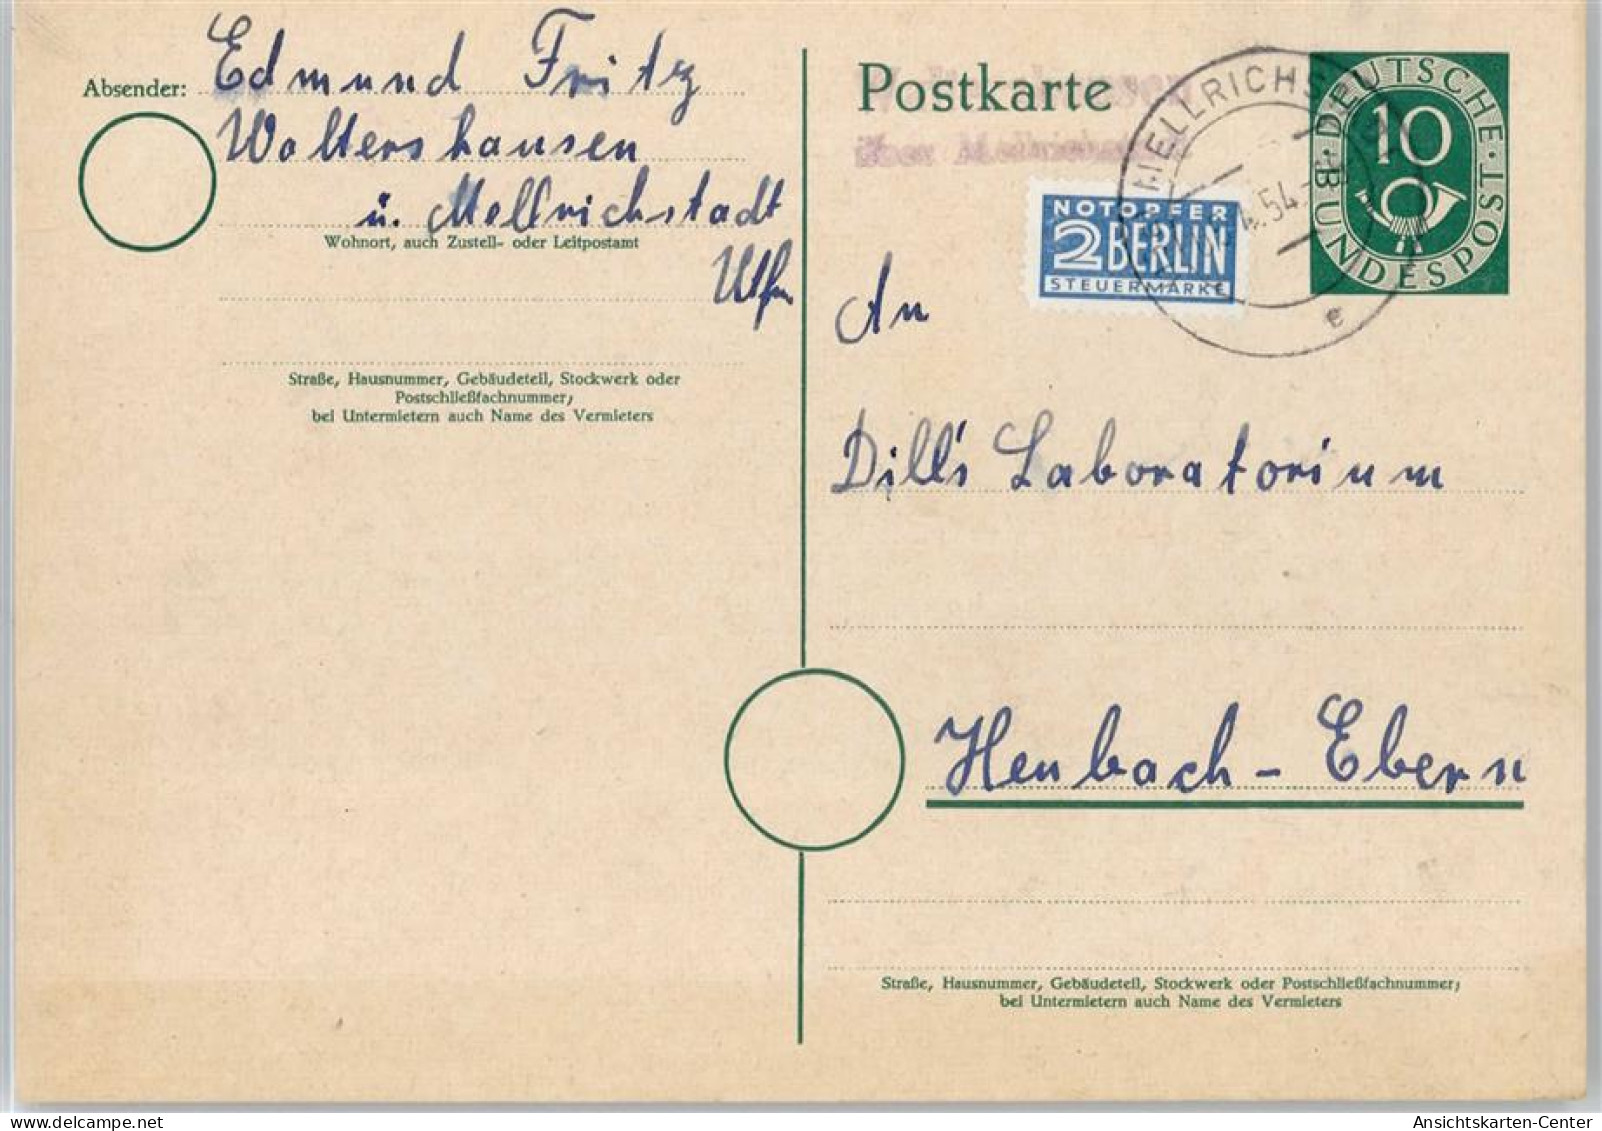 Absender: Edmund Fritz
Woltershausen
ü. Mellrichstadt
Wohnort, auch Zustell- oder Leitpostamt
Ufr.
Straße, Hausnummer, Gebäudeteil, Stockwerk oder
Postschließfachnummer;
bei Untermietern auch Name des Vermieters
Postkarte
über Mellrichstadt
MELLRICHSTADT
4.54
e
DEUTSCHE · BUNDESPOST ·
10
NOTOPFER
2 BERLIN
STEUERMARKE
An
Dill's Laboratorium
Heubach - Ebern
Straße, Hausnummer, Gebäudeteil, Stockwerk oder Postschließfachnummer;
bei Untermietern auch Name des Vermieters
Ansichtskarten-Center